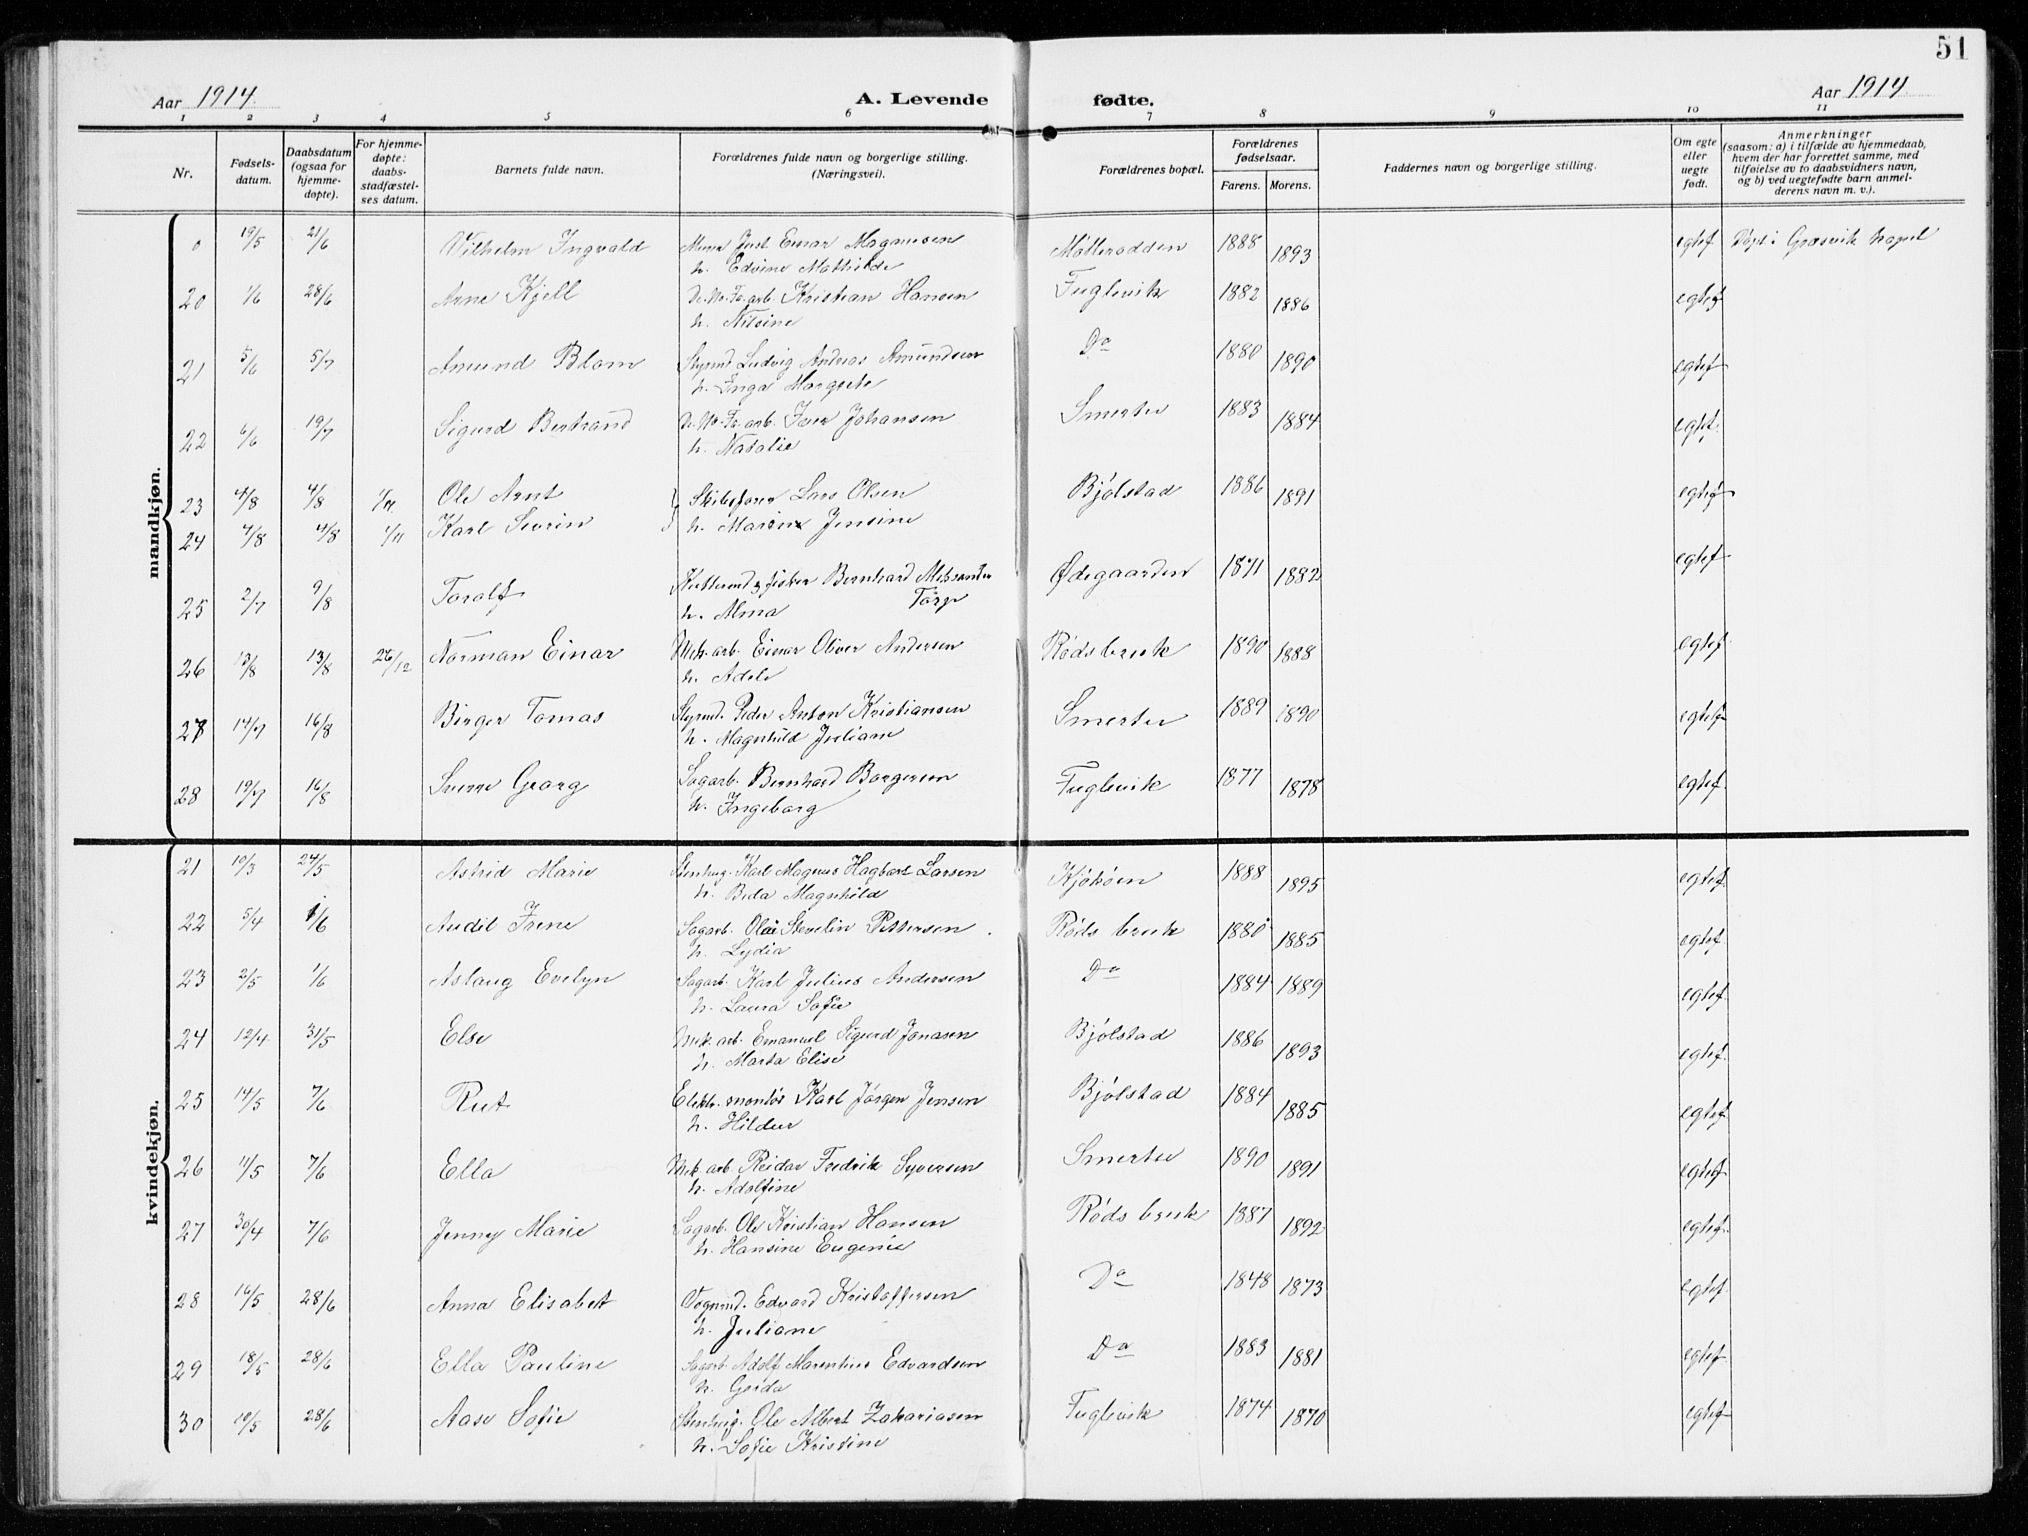 51
Aar 1914.
A. Levende
fødte.
Aar 1914.
1 2 3 4 5 6 7 8 9 10 11
Nr.
Fødsels-
datum.
Daabsdatum
(ogsaa for
hjemme-
døpte).
For hjemme-
døpte:
daabs-
stadfæstel-
ses datum.
Barnets fulde navn.
Forældrenes fulde navn og borgerlige stilling.
(Næringsvei).
Forældrenes bopæl.
Forældrenes
fødselsaar.
Farens. Morens.
Faddernes navn og borgerlige stilling.
Om egte
eller
uegte
født.
Anmerkninger
(saasom: a) i tilfælde av hjemmedaab,
hvem der har forrettet samme, med
tilføielse av to daabsvidners navn,
og b) ved uegtefødte barn anmel-
derens navn m. v.).
mandkjøn.
0 19/5 21/6 Vilhelm Ingvald Murer Just Einar Magnussen Møtterodden 1888 1893 egtef. Døpt i Græsvik kapel
h. Edvine Mathilde
20 1/6 28/6 Arne Kjell D.No.Fa.arb. Kristian Hansen Fuglevik 1882 1886 egtef.
h. Nilsine
21 5/6 5/7 Amund Blom Styrmd. Ludvig Andreas Amundsen Do 1880 1890 egtef.
h. Inga Margrete
22 6/6 19/7 Sigurd Bertrand D.No.Fa.arb. Iver Johansen Smertu 1883 1884 egtef.
h. Natalie
23 4/8 4/8 1/11 Ole Arnt Skibsfører Lars Olsen Bjølstad 1886 1891 egtef.
24 4/8 4/8 1/11 Karl Severin h. Marie Jensine egtef.
25 2/7 9/8 Toralf fisker Bernhard Aleksander Ødegaarden 1871 1882
h. Alma Torp
26 13/8 13/8 26/12 Norman Einar Mek.arb. Einar Oliver Andersen Rødsbruk 1890 1888 egtef.
h. Adele
27 14/7 16/8 Birger Tomas Styrmd. Peder Anton Kristiansen Smertu 1889 1890 egtef.
h. Magnhild Juliane
28 19/7 16/8 Sverre Georg Sagarb. Bernhard Borgersen Fuglevik 1877 1878 egtef.
h. Ingeborg
kvindekjøn.
21 10/3 24/5 Astrid Marie Stenhug. Karl Magnus Hagbart Larsen Kjøkøen 1888 1895 egtef.
h. Beda Magnhild
22 5/4 1/6 Audil Irene Sagarb. Olai Stevelin Pettersen Røds bruk 1880 1885 egtef.
h. Lydia
23 2/5 1/6 Aslaug Evelyn Sagarb. Karl Julius Andersen Do 1884 1889 egtef.
h. Laura Sofie
24 12/4 31/5 Else Mek.arb. Emanuel Sigurd Jonasen Bjølstad 1886 1893 egtef.
h. Marta Elise
25 14/5 7/6 Rut Elektr. montør Karl Jørgen Jensen Bjølstad 1884 1885 egtef.
h. Hildur
26 11/5 7/6 Ella Mek.arb. Reidar Fredrik Syversen Smertu 1890 1891 egtef.
h. Adolfine
27 30/4 7/6 Jenny Marie Sagarb. Ole Kristian Hansen Røds bruk 1887 1892 egtef.
h. Hansine Eugenie
28 16/5 28/6 Anna Elisabet Vognmd. Edvard Kristoffersen Do 1848 1873 egtef.
h. Juliane
29 18/5 28/6 Ella Pauline Sagarb. Adolf Marentius Edvardsen Do 1883 1881 egtef.
h. Gerda
30 10/5 28/6 Aase Sofie Stenhug. Ole Albert Zakariasen Fuglevik 1874 1870 egtef.
h. Sofie Kristine